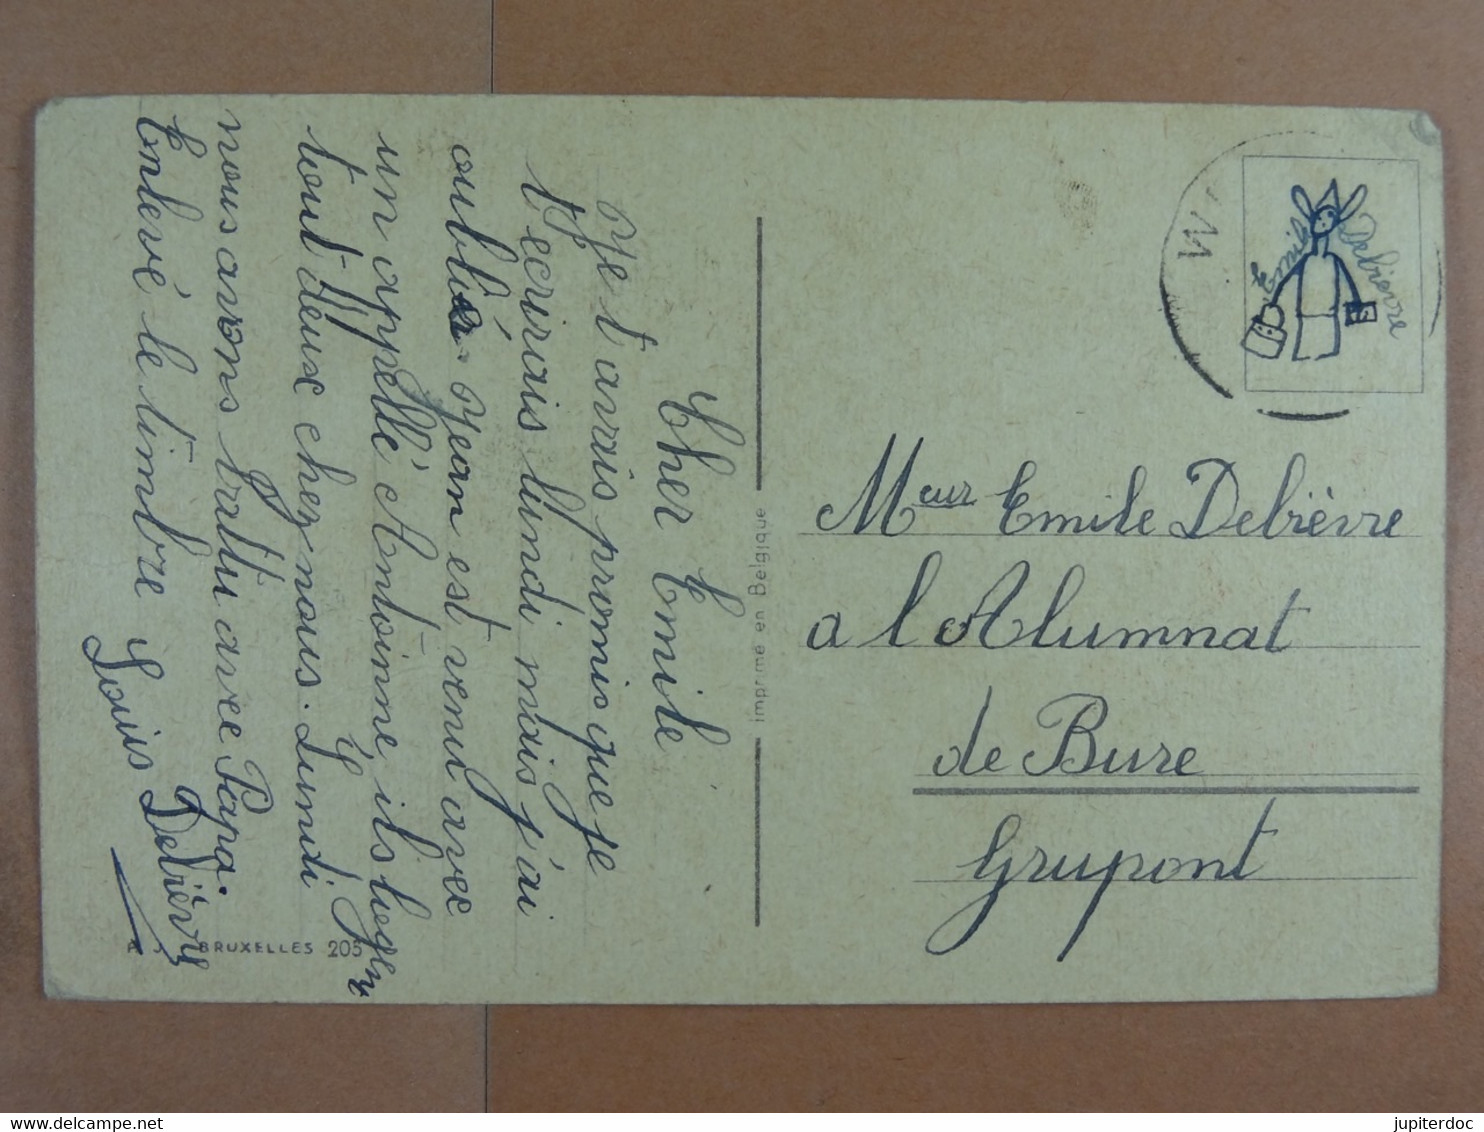 Cher Emile
Je t avais promis que je
t'ecrirais lundi mais j'ai
oublié. Jean est venu avec
un appellé Antoinne, ils logen
tout deux chez nous. Lundi
nous avons battu avec Papa.
Enlevé le timbre
Louis Debièvre
BRUXELLES 205
Imprimé en Belgique
Emile Debievre
Meur Emile Debièvre
a l Alumnat
de Bure
Grupont
jupiterdoc